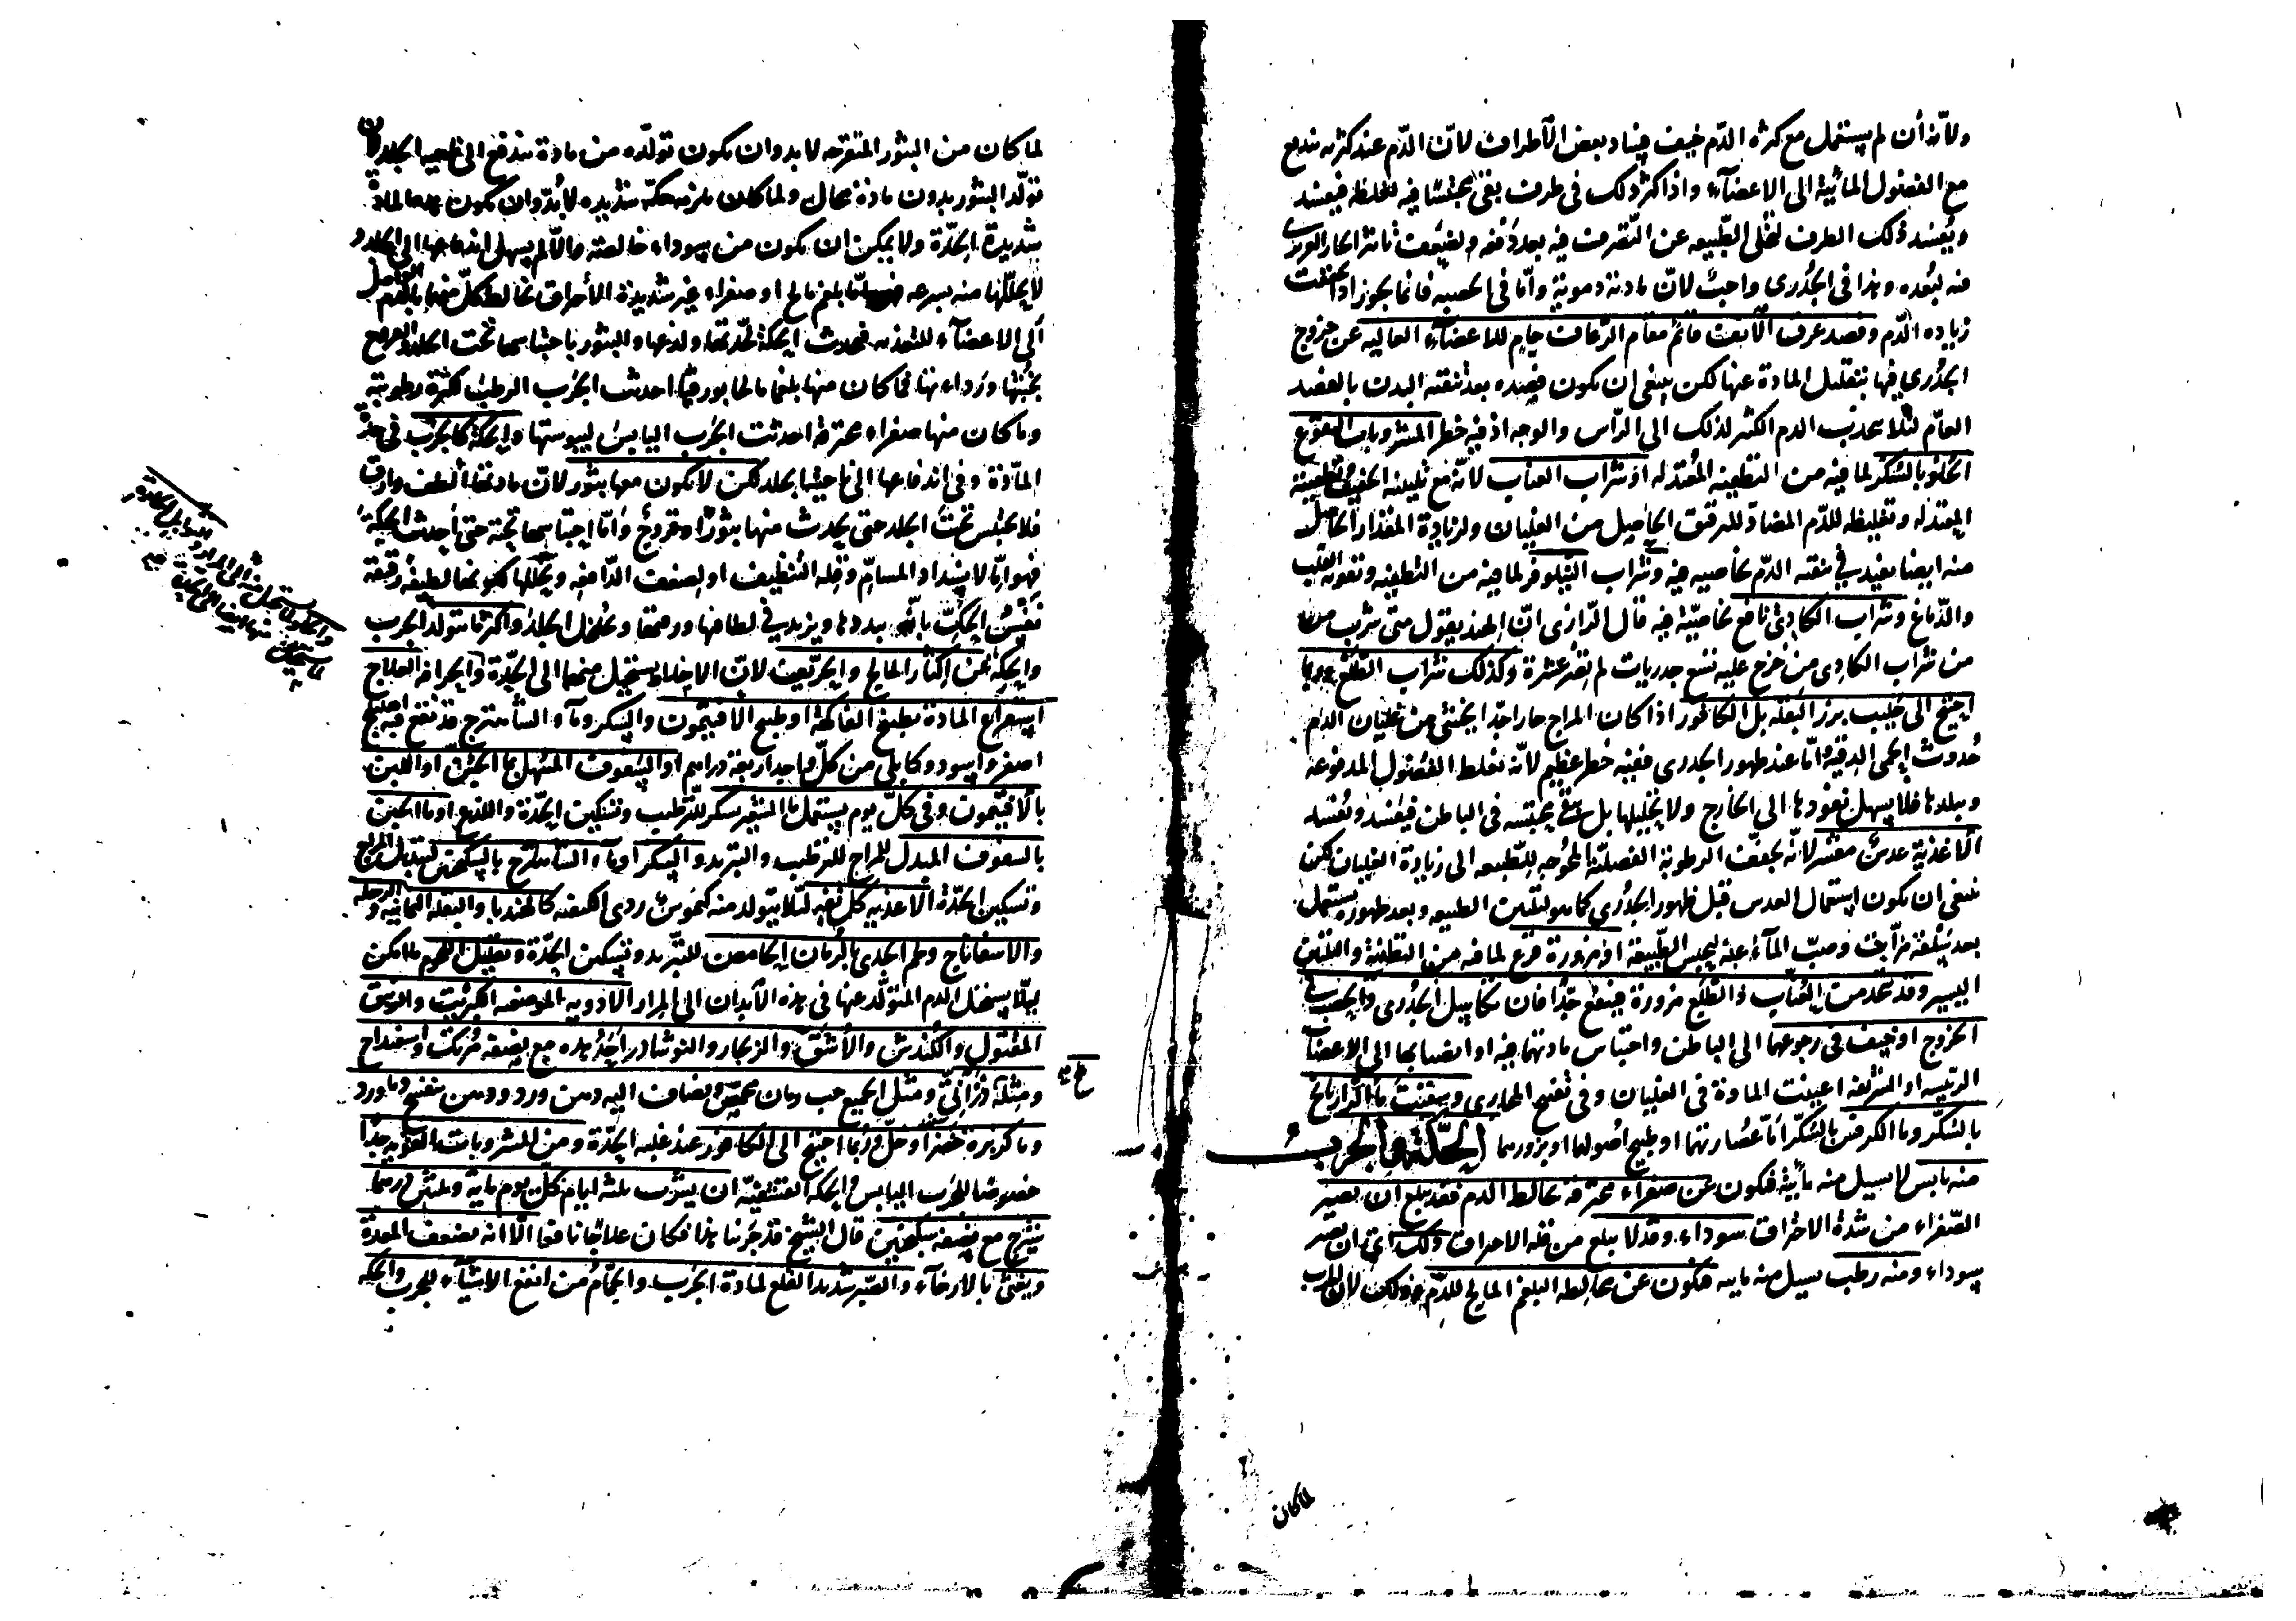 ولأنه أن لم يستعمل مع كثرة الدّم خيف فساد بعض الأطراف لانّ الدّم عند كثرته يندفع
مع الفضول المائية الى الاعضآء واذا كثر ذلك في طرف بقى محتبسًا فيه لغلظه فيفسد
ويفسد ذلك الطرف لتخلى الطبيعه عن التصرف فيه بعد دفعه ولضعف تاثير الحار الغريزى
فيه لبعده وهذا في الجُدرى واجبٌ لانّ مادته دموية وامّا في الحصبه فانما يجوز اذا
زياده الدّم وفصد عرق الانف قائم مقام الرّعاف حامٍ للاعضآء العاليه عن خروج
الجُدرى فيها بتقليل المادة عنها لكن ينبغى ان يكون فصده بعد تنقيه البدن بالفصد
العامّ لئلا ينجذب الدم الكثير لذلك الى الرّأس والوجه اذ فيه خطر المشروبات النقوع
الحلو بالسّكر لما فيه من التطفيه المعتدله او شراب العناب لانّه مع تليينه الخفيف وتطفيته
المعتدله وتغليظه للدّم المضادّ للترقيق الحاصل من الغليان ولزيادة المقدار الحاصل
منه ايضا يفيد في تنقيه الدّم بخاصيه فيه وشراب النيلوفر لما فيه من التطفيه وتقويه القلب
والدّماغ وشراب الكادى نافع بخاصيّة فيه قال الرّازى انّ الهند يقول متى شرب
من شراب الكادى من خرج عليه تسع جدريات لم تصر عشرة وكذلك شراب الطلع وربما
احتيج الى حليب بزر البقله بل الكافور اذا كان المزاج حارا جدّا يخشى من غليان الدّم
حُدوث الحمى الدقيّة وامّا عند ظهور الجدرى ففيه خطر عظيم لانّه يغلظ الفضول المدفوعه
ويبلدها فلا يسهل نفوذها الى الخارج ولا تحليلها بل تبقى محتبسه في الباطن فيفسد وتُفسد
الاغذية عدس مقشر لانّه يجفّف الرطوبة الفضليّة المحوجه للطّبيعه الى زيادة الغليان لكن
ينبغى ان يكون استعمال العدس قبل ظهور الجُدرى كما هو لتليين الطبيعه وبعد ظهوره يستعمل
بعد سلقه مرّات وصبّ المآء عنه ليحبس الطّبيعة او مزورة قرع لما فيه من التطفية والتليين
اليسير وقد تتخذ من العُناب والطلع مزورة فينفع جدّا فان تكاسل الجُدرى والحصبه في
الخروج او خيف في رجوعهما الى الباطن واحتباس مادتهما فيه او انصبابها الى الاعضآء
الرئيسه او الشريفه اعينت المادة في الغليان وفي تفتيح المجارى وسقيت مآء الرازيانج
بالسّكر ومآ الكرفس بالسّكر امّا عُصارتهما او طبيخ اصولهما او بزورهما الحكّة والجرب
منه يابس لا يسيل منه مائيّة فيكون عن صفراء محترقة تخالط الدم فقد يبلغ ان يصير
الصّفراء من شدّة الاحتراق سوداء وقد لا يبلغ من قلة الاحتراق ذلك اى ان تصير
سوداء ومنه رطب يسيل منه مائيه فيكون عن مخالطه البلغم المالح للدّم وذلك لان الجرب
لما كان
لما كان من البثور المتقرحه لا بد وان يكون تولّده من مادة تندفع الى ناحيه الجلد لان
تولّد البثور بدون مادّة محال ولما كان يلزمه حكّه شديده لا بُدّ وان يكون هذه المادة
شديدة الحدّة ولا يمكن ان يكون من سوداء خالصه والّا لم يسهل اندفاعها الى الجلد و
لا يحلّلها منه بسرعه بلغم مالح او صفراء غير شديدة الاحراق تخالط كلّ منهما الدم الواصل
الى الاعضآء للتغذيه فيحدث الحكّة بحدّتها ولدغها والبثور باحتباسها تحت الجلد والقروح
بخبثها ورداءتها فما كان منها بلغما مالحا بورقيّا احدث الجرب الرطب لكثرة رطوبته
وما كان منها صفراء محترقة احدثت الجرب اليابس ليبوستها والحكّة كالجرب في
المادّة وفي اندفاعها الى ناحية الجلد لكن لا يكون معها بثور لانّ مادتها الطف وارق
فلا تحتبس تحت الجلد حتى يحدث منها بثورٌ وقروحٌ وامّا احتباسها تحته حتى احدثت الحكّة
فهو امّا لانسداد المسامّ وقله التنظيف او لضعف الدّافعه ويحللها لكونها لطيفة رقيقة
وتخلخل الجلد واكثر ما يتولد الجرب
والحكّة عن اكثار المالح والحرّيف لانّ الاخلاط يستحيل منهما الى الحدّة والحرافه العلاج
استفراغ المادة بطبيخ الفاكهة او طبيخ الافتيمون والسّكر ومآء الشاهترج قد نقع فيه اهليلج
اصفر واسود وكابلى من كلّ واحد اربعة دراهم او السّفوف المسهل بمآ الجبن او اللبن
بالافتيمون وفي كلّ يوم يستعمل مآ الشعير بسكر للترطيب وتسكين الحدّة واللذع او مآ الجبن
بالسفوف المبدل للمزاج للترطيب والتبريد والسّكر او مآء الشاهترج بالسكنجبين لتبديل المزاج
وتسكين الحدّة الاغذيه كل تفه لئلا يتولد منه كيموس ردى الكيفيه كالهندبا والبقله اليمانيه والرجله
والاسفاناج ولحم الجدى بالرمان الحامض للتبريد وتسكين الحدّة وتقليل اللحوم ما امكن
ليلا يستحيل الدم المتولّد عنها في هذه الابدان الى المرار الادويه الموضعيه الكبريت والزيبق
المقتول والكُندش والأشق والزنجار والنوشادر احد هذه مع نصفه مُرتك واسفيداج
ومثله قنّة ومثل الجميع حب رمان محمّص ويضاف اليه دهن ورد ودهن بنفسج ومآ ورد
ومآ كزبرة خضرا وخلّ وربّما احتيج الى الكافور عند غلبه الحدّة ومن المشروبات القويه جدّا
خصوصًا للجرب اليابس والحكّه القشفيّة ان يشرب ثلثه ايام كلّ يوم مايه وثلثين درهما
شيرج مع نصفه سكنجبين قال الشيخ قد جرّبنا هذا فكان علاجًا نافعا الّا انه يضعف المعدة
ويغثى بالارخآء والصّبر شديد القلع لمادة الجرب والحمّام من انفع الاشيآء للجرب والحكّه